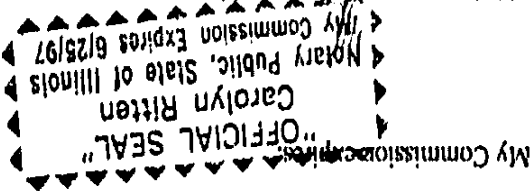 My Commission expires:
"OFFICIAL SEAL"
Carolyn Ritten
Notary Public, State of Illinois
My Commission Expires 6/25/97